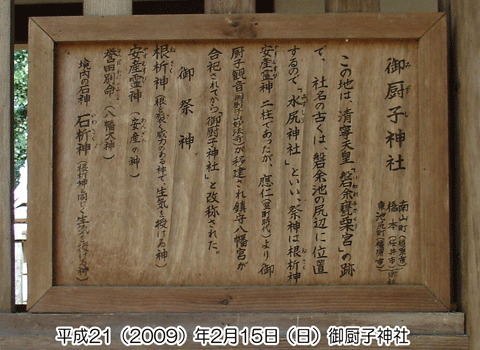 御厨子神社
南山町（橿原市）
橋本（桜井市）
東池尻町（橿原市）
この地は、清寧天皇「磐余甕栗宮」の跡
で、社名の古くは、磐余池の尻辺に位置
するので「水尻神社」といい、祭神は根析神
安産霊神二柱であったが、應仁（室町時代）より御
厨子観音（妙法寺）が移建され鎮守八幡宮が
合祀されてから「御厨子神社」と改称された。
御祭神
根析神（根を裂く威力のある神で、生気を授ける神）
安産霊神（安産の神）
誉田別命（八幡大神）
境内の石神 石析神（根析神と同じく生気を授ける神）
平成21（2009）年2月15日（日）御厨子神社